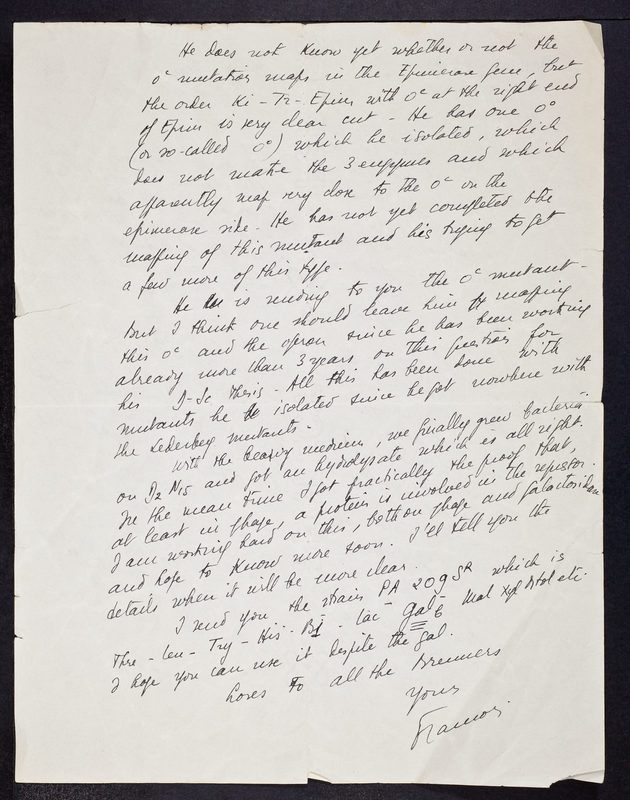 He does not know yet whether or not the
o^c mutation maps in the Epimerase gene, but
the order Ki - Tr - Epim with o^c at the right end
of Epim is very clear cut - He has one o°
(or so-called o°) which he isolated, which
does not make the 3 enzymes and which
apparently map very close to the o^c on the
epimerase side. He has not yet completed the
mapping of this mutant and his trying to get
a few more of this type.
He is sending to you the o^c mutant -
But I think one should leave him mapping
this o^c and the operon since he has been working
already more than 3 years on this question for
his D-Sc Thesis - All this has been done with
mutants he isolated since he got nowhere with
the Lederberg mutants -
With the heavy medium, we finally grew bacteria
on D2 N15 and got an hydrolysate which is all right.
In the mean time I got practically the proof that,
at least in phage, a protein is involved in the repressor.
I am working hard on this, both on phage and galactosidase
and hope to know more soon. I'll tell you the
details when it will be more clear.
I send you the strain PA 209 S^R which is
Thre - Leu - Try - His - B1 - lac^- gal^-_6 Mal Xyl Mtol etc.
I hope you can use it despite the gal.
Loves to all the Brenners
Yours
François